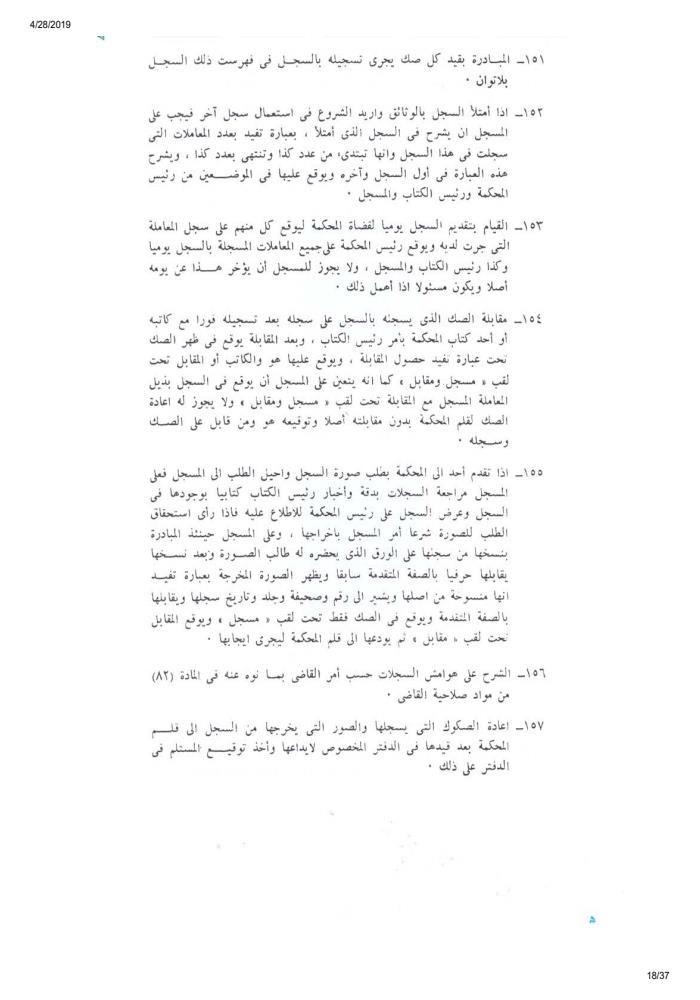 4/28/2019
١٥١ـ المبــادرة بقيد كل صك يجرى تسجيله بالسجــل فى فهرست ذلك السجـل
بلاتوان ٠
١٥٢ـ اذا أمتلأ السجل بالوثائق واريد الشروع فى استعمال سجل آخر فيجب على
المسجل ان يشرح فى السجل الذى أمتلأ ، بعبارة تفيد بعدد المعاملات التى
سجلت فى هذا السجل وانها تبتدىء من عدد كذا وتنتهى بعدد كذا ، ويشرح
هذه العبارة فى أول السجل وآخره ويوقع عليها فى الموضــــعين من رئيس
المحكمة ورئيس الكتاب والمسجل ٠
١٥٣ـ القيام بتقديم السجل يوميا لقضاة المحكمة ليوقع كل منهم على سجل المعاملة
التى جرت لديه ويوقع رئيس المحكمة على جميع المعاملات المسجلة بالسجل يوميا
وكذا رئيس الكتاب والمسجل ، ولا يجوز للمسجل أن يؤخر هـــذا عن يومه
أصلا ويكون مسئولا اذا أهمل ذلك ٠
١٥٤ـ مقابلة الصك الذى يسجله بالسجل على سجله بعد تسجيله فورا مع كاتبه
أو أحد كتاب المحكمة بأمر رئيس الكتاب ، وبعد المقابلة يوقع فى ظهر الصك
تحت عبارة تفيد حصول المقابلة ، ويوقع عليها هو والكاتب أو المقابل تحت
لقب « مسجل ومقابل » كما انه يتعين على المسجل أن يوقع فى السجل بذيل
المعاملة المسجل مع المقابلة تحت لقب « مسجل ومقابل » ولا يجوز له اعادة
الصك لقلم المحكمة بدون مقابلته أصلا وتوقيعه هو ومن قابل على الصـك
وسـجله ٠
١٥٥ـ اذا تقدم أحد الى المحكمة بطلب صورة السجل واحيل الطلب الى المسجل فعلى
المسجل مراجعة السجلات بدقة وأخبار رئيس الكتاب كتابيا بوجودها فى
السجل وعرض السجل على رئيس المحكمة للاطلاع عليه فاذا رأى استحقاق
الطلب للصورة شرعا أمر المسجل باخراجها ، وعلى المسجل حينئذ المبادرة
بنسخها من سجلها على الورق الذى يحضره له طالب الصـورة وبعد نسـخها
يقابلها حرفيا بالصفة المتقدمة سابقا ويظهر الصورة المخرجة بعبارة تفيــد
انها منسوخة من اصلها ويشير الى رقم وصحيفة وجلد وتاريخ سجلها ويقابلها
بالصفة المتقدمة ويوقع فى الصك فقط تحت لقب « مسجل » ويوقع المقابل
تحت لقب « مقابل » ثم يودعها الى قلم المحكمة ليجرى ايجابها ٠
١٥٦ـ الشرح على هوامش السجلات حسب أمر القاضى بمـا نوه عنه فى المادة (٨٢)
من مواد صلاحية القاضى ٠
١٥٧ـ اعادة الصكوك التى يسجلها والصور التى يخرجها من السجل الى قلــــم
المحكمة بعد قيدها فى الدفتر المخصوص لايداعها وأخذ توقيــــع المستلم فى
الدفتر على ذلك ٠
18/37